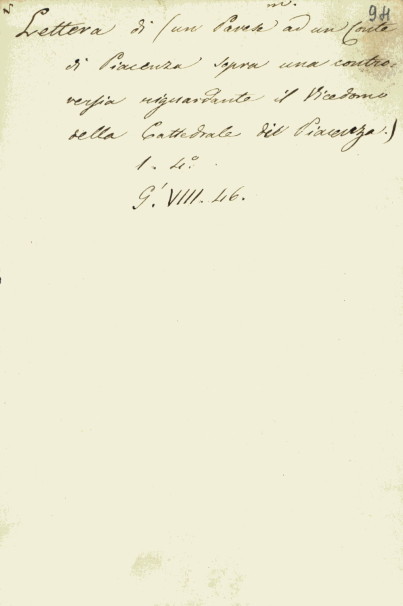 m. 98
Lettera di (un Pavese ad un Conte
di Piacenza sopra una contro-
versia riguardante il Vicedomo
della Cattedrale di Piacenza.)
1. 4.º
G. VIII. 46.